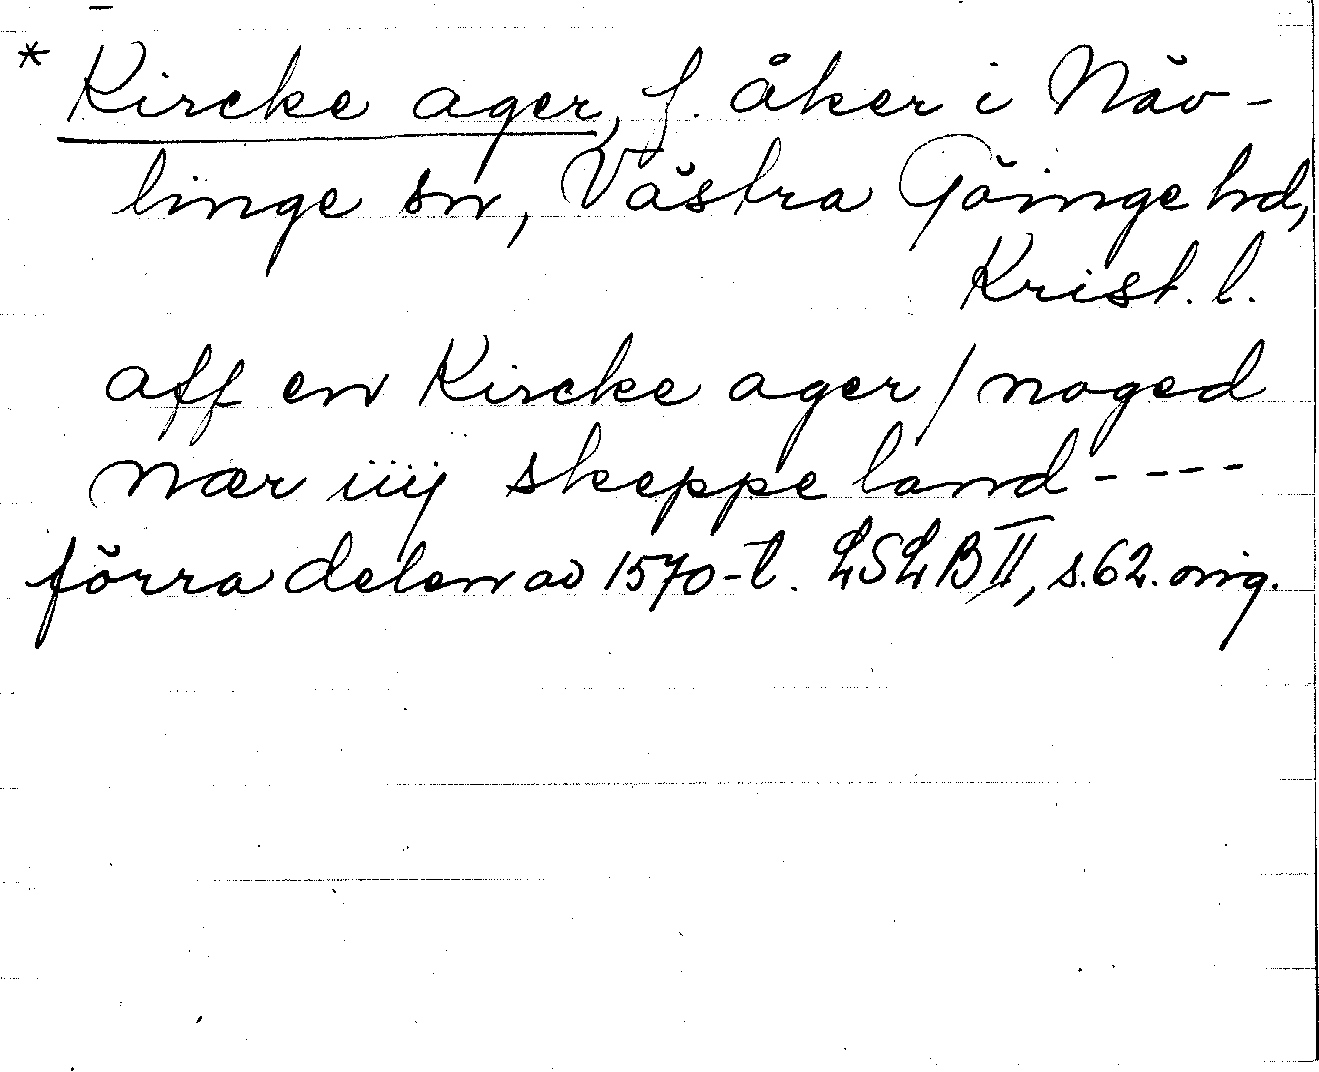 * Kircke ager, f. åker i Näv-
linge sn, Västra Göinge hd,
Krist. l.
aff en Kircke ager / noged
nær iiij skeppe land ----
förra delen av 1570-t. LSLB II, s. 62. orig.